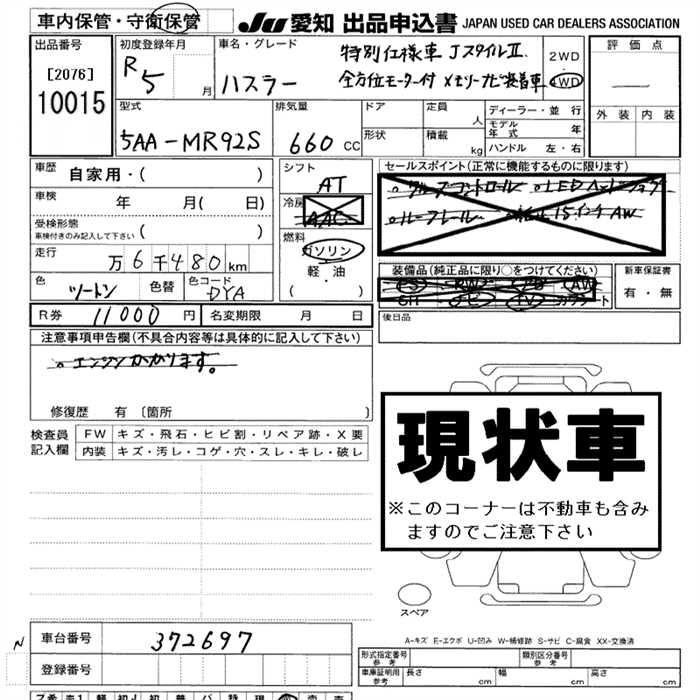 車内保管・守衛保管 JU 愛知 出品申込書 JAPAN USED CAR DEALERS ASSOCIATION
出品番号
[2076]
10015
初度登録年月
R5 月
車名・グレード
ハスラー
特別仕様車 JスタイルⅡ
全方位モーター付 メモリーナビ装着車
2WD
4WD
評価点
外装 内装
型式
5AA-MR92S
排気量
660 CC
ドア
形状
定員 人
積載 kg
ディーラー・並行
モデル年式 年
ハンドル 左・右
車歴 自家用・( )
車検 年 月( 日)
受検形態
車検付きのみ記入して下さい ( )
走行 万6千480km
色 ツートン 色替 色コード DYA
シフト
AT
冷房
AAC
燃料
ガソリン
軽・油
( ・ )
セールスポイント(正常に機能するものに限ります)
。クルーズコントロール 。LEDヘッドランプ
。ルーフレール 純正15インチAW
装備品(純正品に限り○をつけてください)
PS・PW・AB・AW
SR・ナビ・TV・カワシート
新車保証書
有・無
R券 11000 円 名変期限 月 日
後日品
注意事項申告欄(不具合内容等は具体的に記入して下さい)
。エンジンかかります。
修復歴 有〔箇所 〕
検査員記入欄
FW キズ・飛石・ヒビ割・リペア跡・X要
内装 キズ・汚レ・コゲ・穴・スレ・キレ・破レ
現状車
※このコーナーは不動車も含み
ますのでご注意下さい
スペア
A-キズ E-エクボ U-凹み W-補修跡 S-サビ C-腐食 XX-交換済
N
車台番号 372697
登録番号
形式指定番号
参考
類別区分番号
参考
車庫証明用
参考
長さ cm 幅 cm 高さ cm